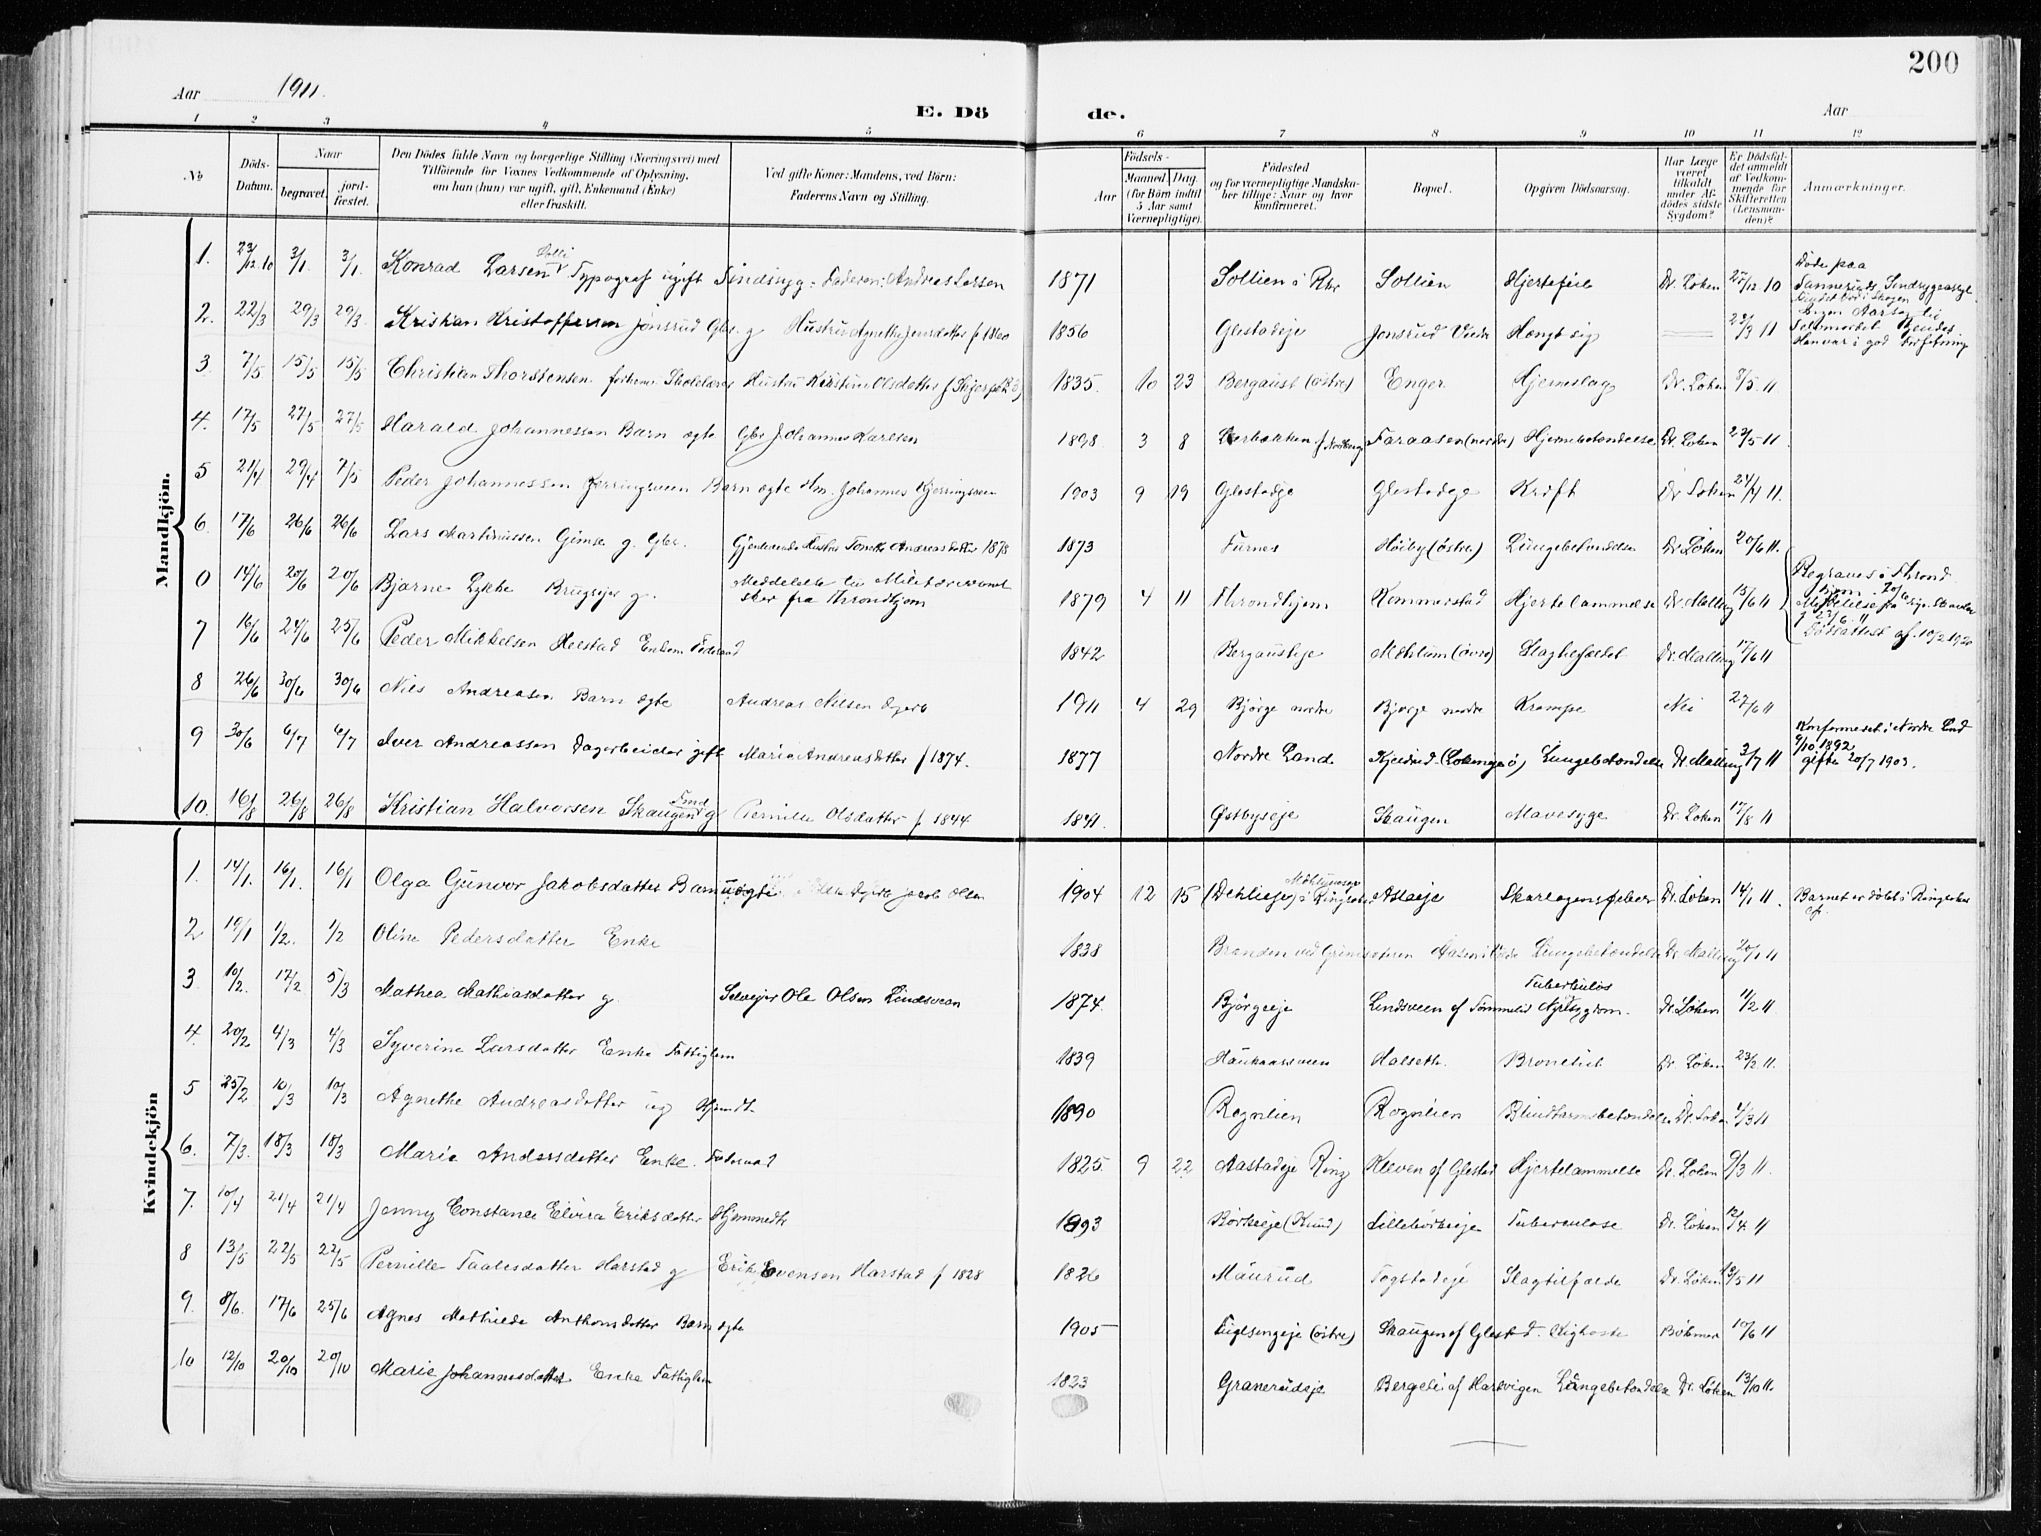 200
Aar 1911.
E. Dö de.
Aar
1 2 3 4 5 6 7 8 9 10 11 12
No
Döds-Datum.
Naar
begravet.
jord-fæstet.
Den Dödes fulde Navn og borgerlige Stilling (Næringsvei) med
Tilföiende for Voxnes Vedkommende af Oplysning,
om han (hun) var ugift, gift, Enkemand (Enke)
eller fraskilt.
Ved gifte Koner: Mandens, ved Börn:
Faderens Navn og Stilling.
Födsels-
Aar
Maaned. Dag.
(for Börn indtil
5 Aar samt
Værnepligtige).
Födested
og for værnepligtige Mandska-
ber tillige: Naar og hvor
konfirmeret.
Bopæl.
Opgiven Dödsaarsag.
Har Læge
været
tilkaldt
under Af-
dödes sidste
Sygdom?
Er Dödsfal-
det anmeldt
af Vedkom-
mende for
Skifteretten
(Lensman-
den)?
Anmærkninger.
Mandkjön.
1. 23/12 10 3/1. 3/1. Konrad Larsen Typograf ugift Sindssyg. Faderen: Andreas Larsen 1871 Sollien i Rbr Sollien Hjertefeil Dr. Löken 25/12 10 Döde paa
2. 22/3 29/3 29/3. Kristian Kristoffersen Jonsrud Gbr. g Hustru Agnethe Jensdatter f 1860 1856 Glestadeje Jonsrud Hængt sig 22/3 11 Han var i god Forfatning
3 7/5 15/5 15/5 Christian Thorstensen forhenv. Skolelærer Hustru Kirstine Olsdatter 1835. 10 23 Bergaust (östre) Enger Hjerneslag Dr. Löken 8/5. 11.
4. 17/5 27/5 27/5 Harald Johannessen Barn ægte Gbr Johannes Karlsen 1898 3 8 Faraasen (nordre) Hjernebetændelse Dr. Löken 22/5 11.
5 21/4 29/4 7/5 Peder Johannessen Kjerringsveen Barn ægte Hm. Johannes Kjerringsveen 1903 9 19 Glestadeje Glestadeje Kræft Dr. Löken 24/4 11.
6. 17/6 26/6 26/6 Lars Martinussen Gimse g. Gbr. Gjenlevende Hustru Andreasdatter 1878 1873 Furnes Höiby (östre) Lungebetændelse Dr. Löken 20/6 11.
0 14/6 20/6 20/6 Bjarne Lykke Brugsejer g. Meddelelse til
sker fra Throndhjem 1879 4 11 Throndhjem Kommerstad Hjertelammelse Dr. Malling 15/6 11 Begraves i Thrond
hjem 20/6
Dödsattest af. 10/2 1920
7 16/6 24/6 25/6 Peder Mikkelsen Enkem Föderaad 1842 Bergausteje Möhlum (övre) Slagtilfældet Dr. Malling 17/6 11
8 26/6 30/6 30/6 Nils Andreasen Barn ægte Andreas Nilsen 1911 4 29 Björge nordre Björge nordre Krampe Nei 27/6 11
9 30/6 6/7 6/7 Iver Andreassen Dagarbeider gift Marie Andreasdatter f 1874. 1877 Nordre Land Lungebetændelse Dr. Malling 3/7 11 Konfirmeret i Nordre Land
9/10 1892
gifte 20/7 1903.
10. 16/8 26/8 26/8 Kristian Halvorsen Skaugen g Pernille Olsdatter f 1844 1841. Östbyseje Skaugen Mavesyge Dr. Löken 17/8 11
Kvindekjön
1. 14/1. 16/1. 16/1 Olga Gunvor Jakobsdatter Barn uægte Jacob Olsen 1904 12 15 (Dehlieje) i Ringsaker Skarlagensfeber Dr. Löken 14/1 11. Barnet er döbt i Ringsaker
2 19/1 1/2. 1/2 Oline Pedersdatter Enke 1838 Lungebetændelse Dr Malling 20/1 11
3 10/2. 17/2 5/3 Mathea Mathiasdatter g. Selvejer Ole Olsen Lindsveen 1874. Björgeeje Lindsveen af Tuberkulös
Nyresygdom. Dr. Löken 11/2 11
4. 20/2 4/3 4/3 Syverine Larsdatter Enke Fattiglem 1839 Haukaasveen Halseth. Bronchit Dr. Löken 23/2 11.
5 25/2 10/3 10/3 Agnethe Andreasdatter ug Hjemdt. 1890 Rognlien Rognlien Blindtarmsbetændelse Dr. Löken 4/3 11
6. 7/3. 18/3 18/3 Marie Andersdatter Enke. Föderaad 1825. 9 22 Aastadeje Ring Kleven af Glestad Hjertelammelse Dr. Löken 9/3 11.
7. 10/4 21/4 21/4 Jenny Constance Elvira Eriksdatter Hjemmedtr 1893 Börkeeje Lillebörkeeje Tuberculose Dr. Löken 12/4. 11
8 13/5 22/5 22/5 Pernille Taalesdatter Harstad g Erik Evensen Harstad f 1828 1826 Maurud Fogstadeje Slagtilfælde Dr. Löken 5 11
9. 8/6. 17/6 25/6 Agnes Mathilde Anthonsdatter Barn ægte 1905 Fuglsengeje (östre) Skaugen af Glestad. Kighoste Böhmer 10/6 11
10 12/10 20/10 20/10 Marie Johannesdatter Enke Fattiglem 1823 Granerudseje Bergeli af Lungebetændelse Dr. Löken 13/10 11.